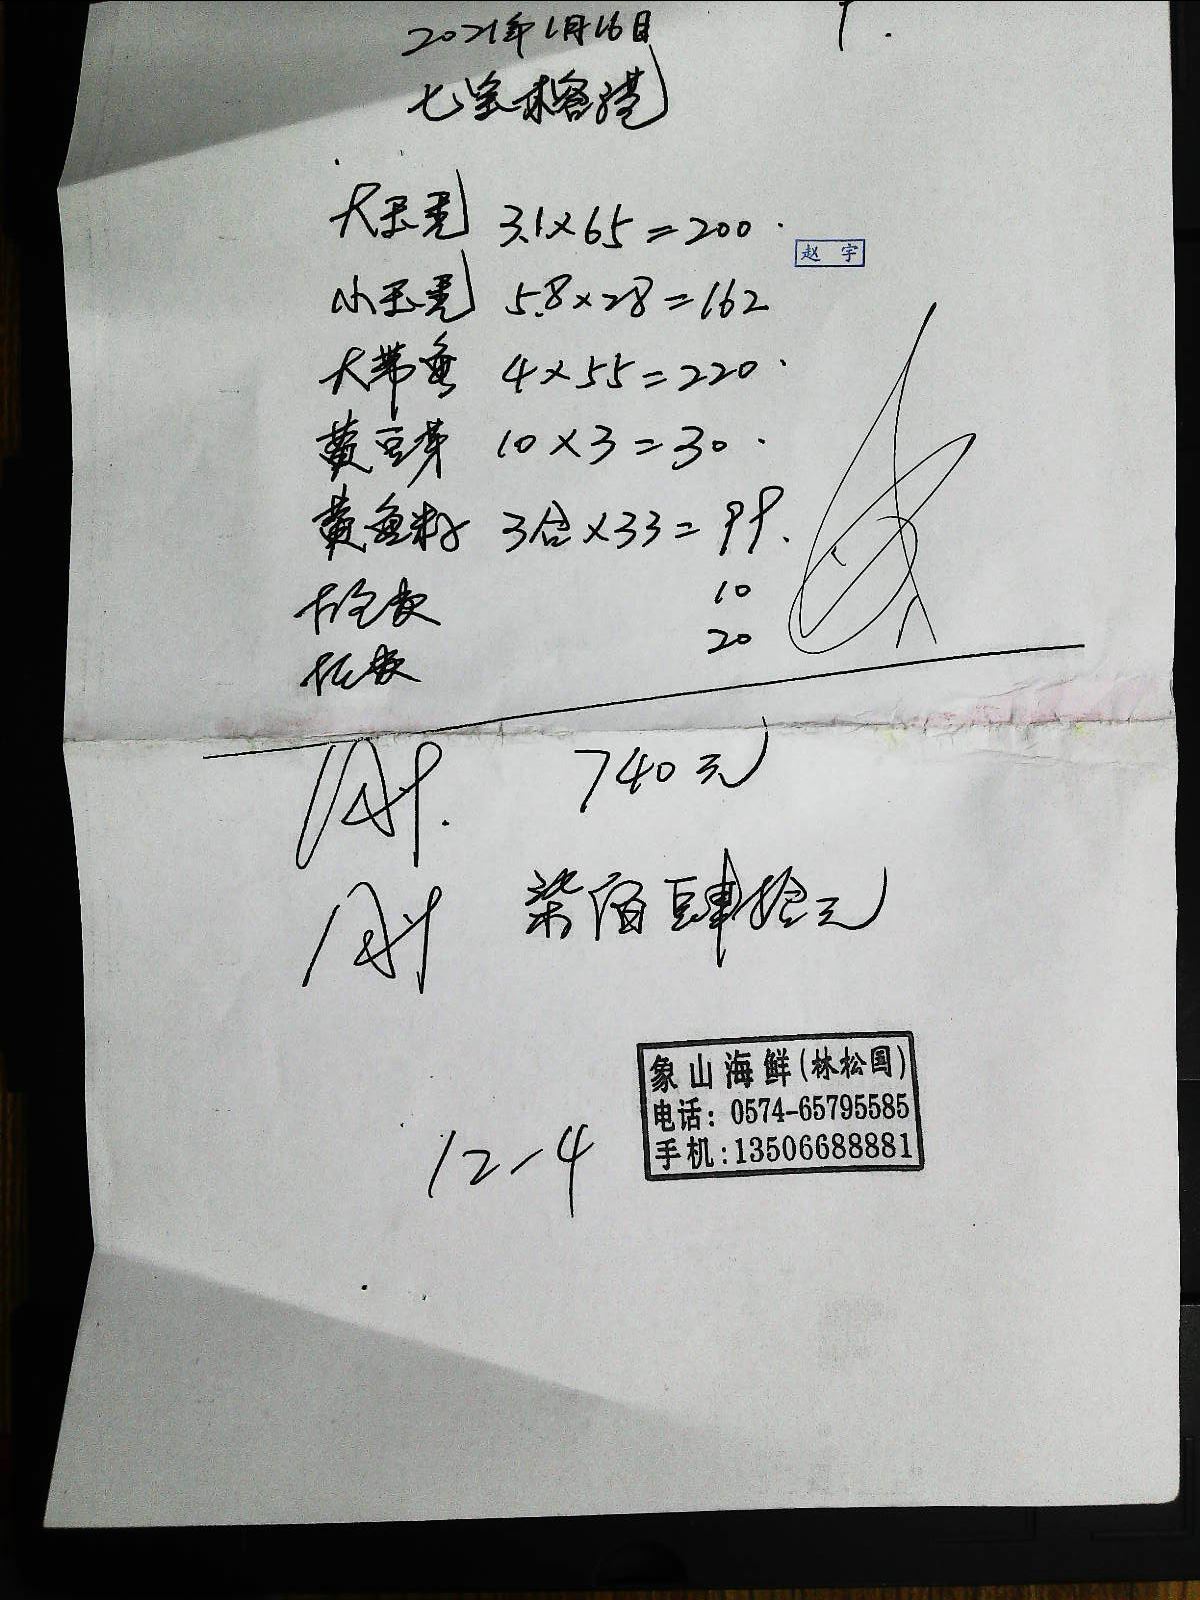 2021年1月16日
七宝来客港
大玉秃 3.1×65=200
赵 宇
小玉秃 5.8×28=162
大带鱼 4×55=220
黄豆芽 10×3=30
黄鱼籽 3合×33=99
10
20
740元
柒佰肆拾元
象山海鲜(林松国)
电话: 0574-65795585
手机:13506688881
12-4